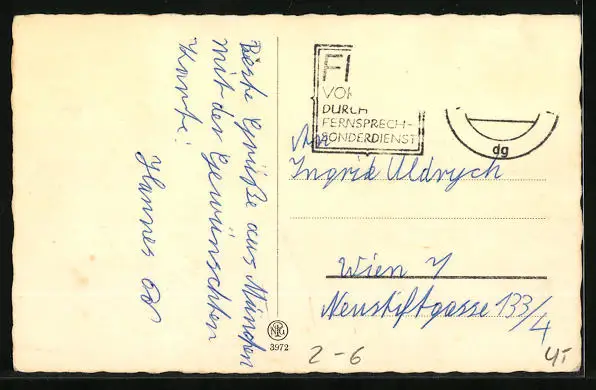 Beste Grüße aus München
mit der gewünschten
Karte!
Hannes
FI
VON
DURCH
FERNSPRECH-
SONDERDIENST
dg
An
Ingrid Uldrych
Wien 7
Neustiftgasse 133/4
3972
2-6